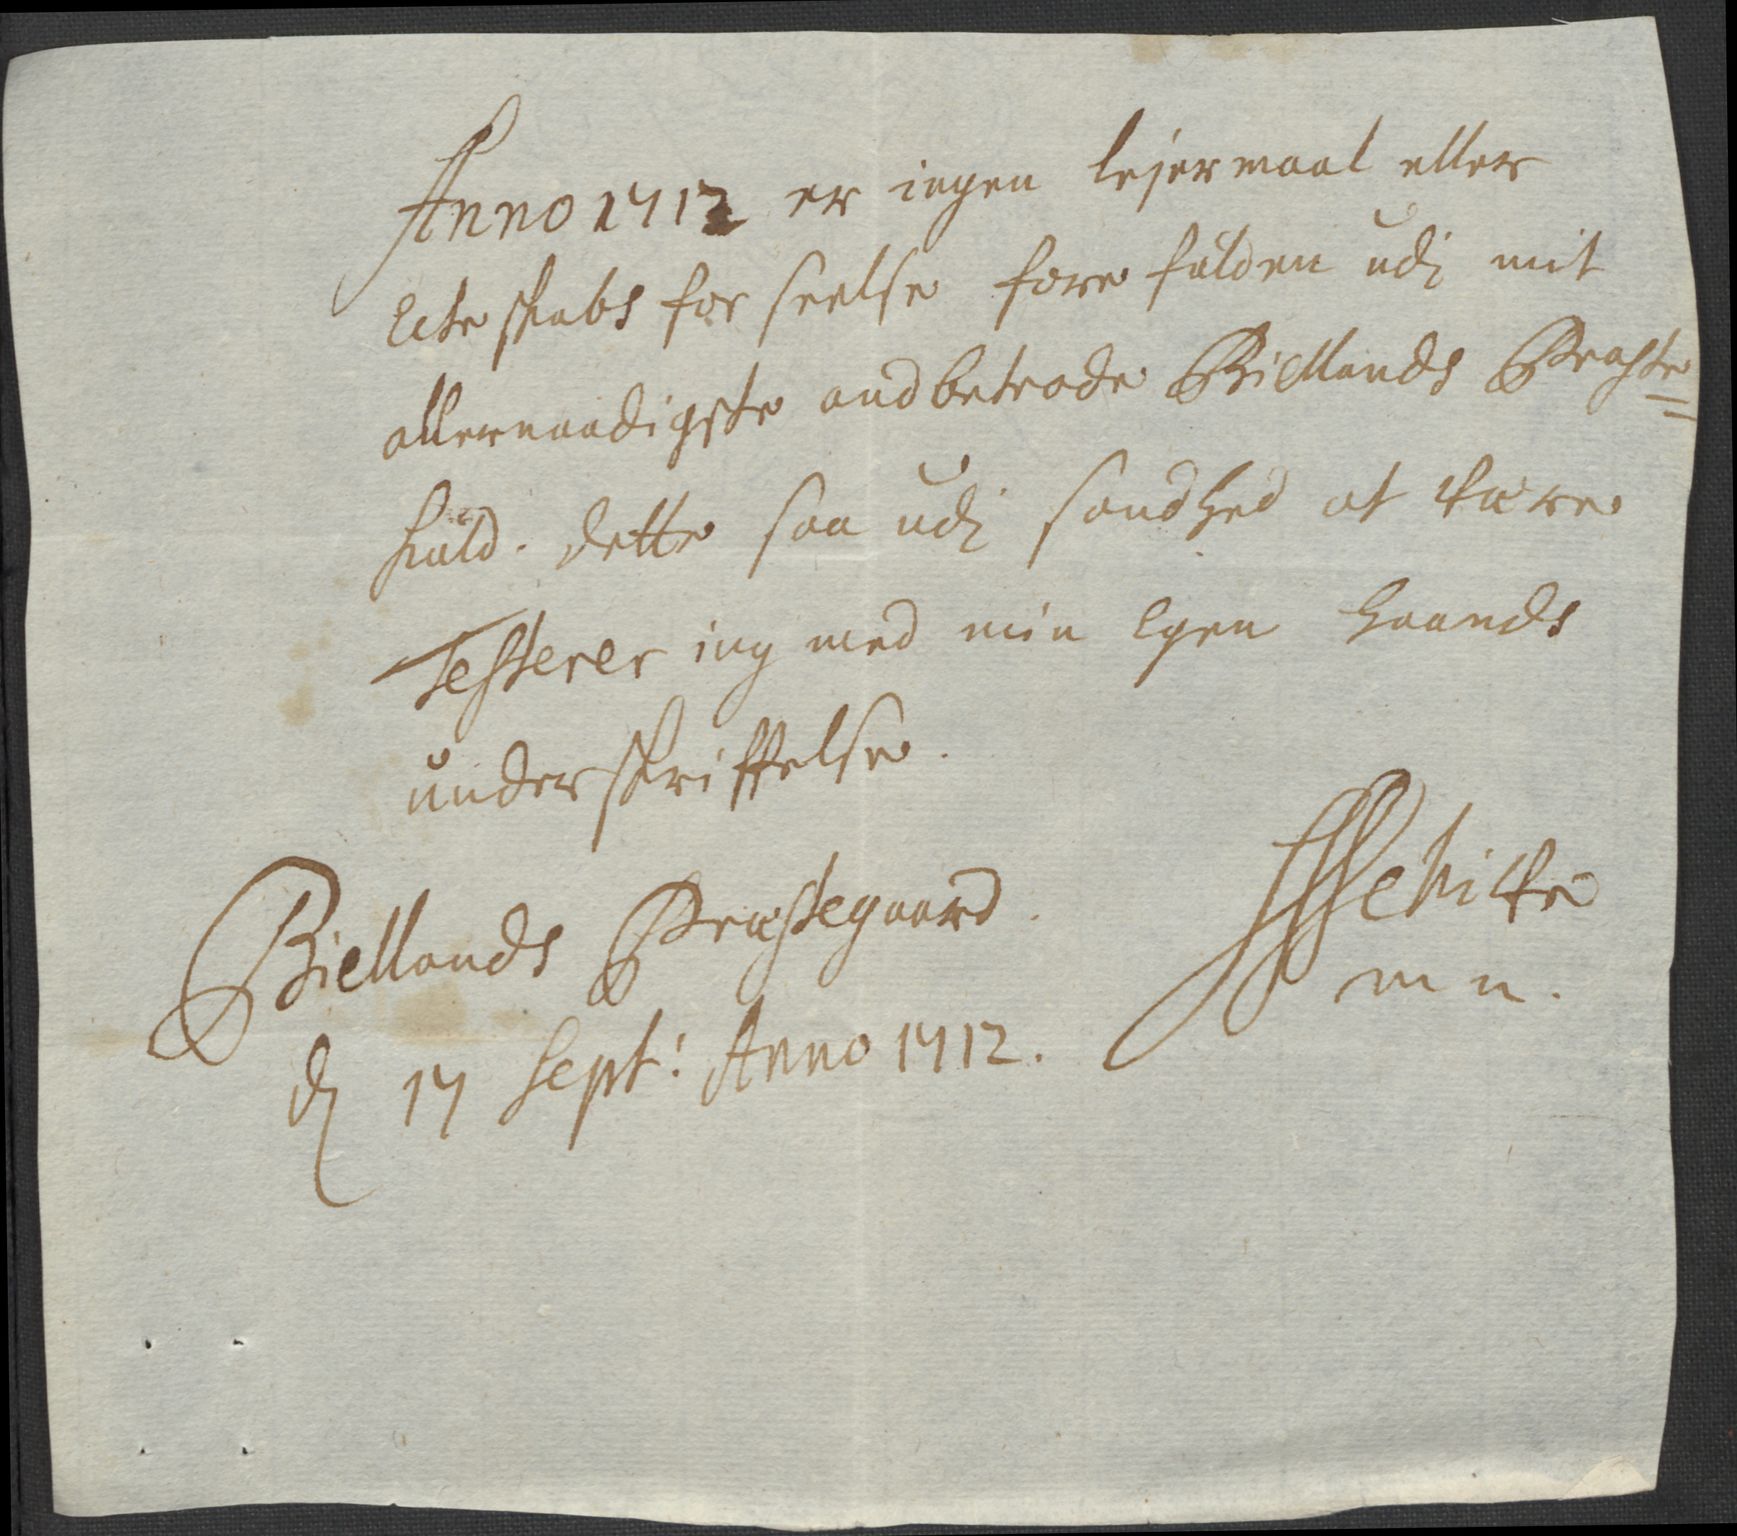 Anno 1712 er ingen lejermaal eller
Ecteskabs forseelse fore falden udj mit
allernaadigste andbetrode Biellands Præste=
Kald. Dette saa udj sandhed at være
Testerer ieg med min Egen haands
underskriffelse.
Biellands Præstegaard.
dj 17 Sept: Anno 1712.
m n.